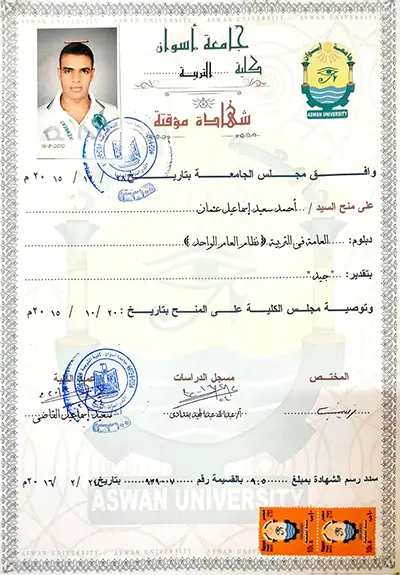 جامعة أسوان
كلية ........ التربية ........
شهادة مؤقتة
ASWAN UNIVERSITY
16-8-2010
وافق مجلس الجامعة بتاريخ ٢٨ / ١٠ / ٢٠١٥م
على منح السيد / .. أحمد سعيد إسماعيل عثمان
دبلوم: ..... العامة فى التربية ﴿ نظام العام الواحد ﴾
بتقدير: .. " جيد "
وتوصية مجلس الكلية على المنح بتاريخ: ٢٠ / ١٠ / ٢٠١٥م
المختص
مسجل الدراسات
عميد الكلية
سعيد إسماعيل القاضي
سدد رسم الشهادة بمبلغ ٩.٥٠ بالقسيمة رقم ٩٣٩٠٠٧ بتاريخ ٢٤ / ٢ / ٢٠١٦م
ASWAN UNIVERSITY